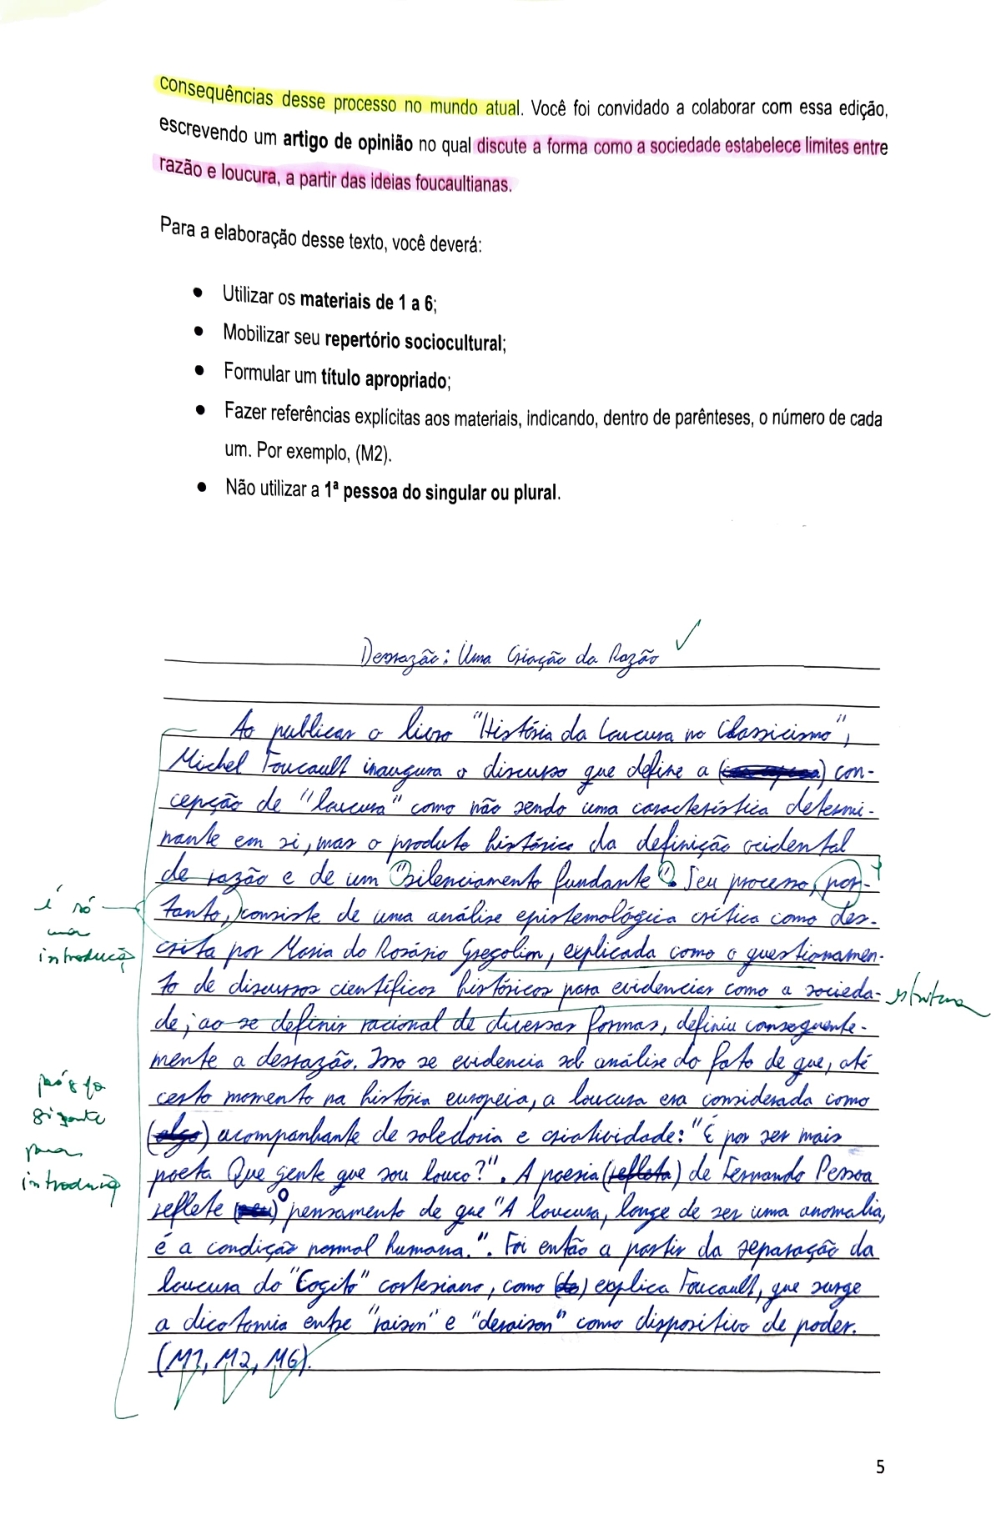 consequências desse processo no mundo atual. Você foi convidado a colaborar com essa edição,
escrevendo um artigo de opinião no qual discute a forma como a sociedade estabelece limites entre
razão e loucura, a partir das ideias foucaultianas.
Para a elaboração desse texto, você deverá:
• Utilizar os materiais de 1 a 6;
• Mobilizar seu repertório sociocultural;
• Formular um título apropriado;
• Fazer referências explícitas aos materiais, indicando, dentro de parênteses, o número de cada
um. Por exemplo, (M2).
• Não utilizar a 1ª pessoa do singular ou plural.
Desrazão: Uma Criação da Razão
Ao publicar o livro "História da Loucura no Classicismo",
Michel Foucault inaugura o discurso que define a con-
cepção de "loucura" como não sendo uma característica determi-
nante em si, mas o produto histórico da definição ocidental
de razão e de um "silenciamento fundante". Seu processo, por-
tanto, consiste de uma análise epistemológica crítica como des-
é só
uma
introdução
crita por Maria do Rosário Gregolim, explicada como o questionamen-
to de discursos científicos históricos para evidenciar como a socieda-
estrutura
de, ao se definir racional de diversas formas, definiu consequente-
mente a desrazão. Isso se evidencia sob análise do fato de que, até
certo momento na história europeia, a loucura era considerada como
parágrafo
gigante
para
introdução
(algo) acompanhante de sabedoria e criatividade: "É por ser mais
poeta Que gente que sou louco?". A poesia (reflete) de Fernando Pessoa
reflete (seu) o pensamento de que "A loucura, longe de ser uma anomalia,
é a condição normal humana.". Foi então a partir da separação da
loucura do "Cogito" cartesiano, como (do) explica Foucault, que surge
a dicotomia entre "raison" e "deraison" como dispositivo de poder.
(M1, M2, M6).
5